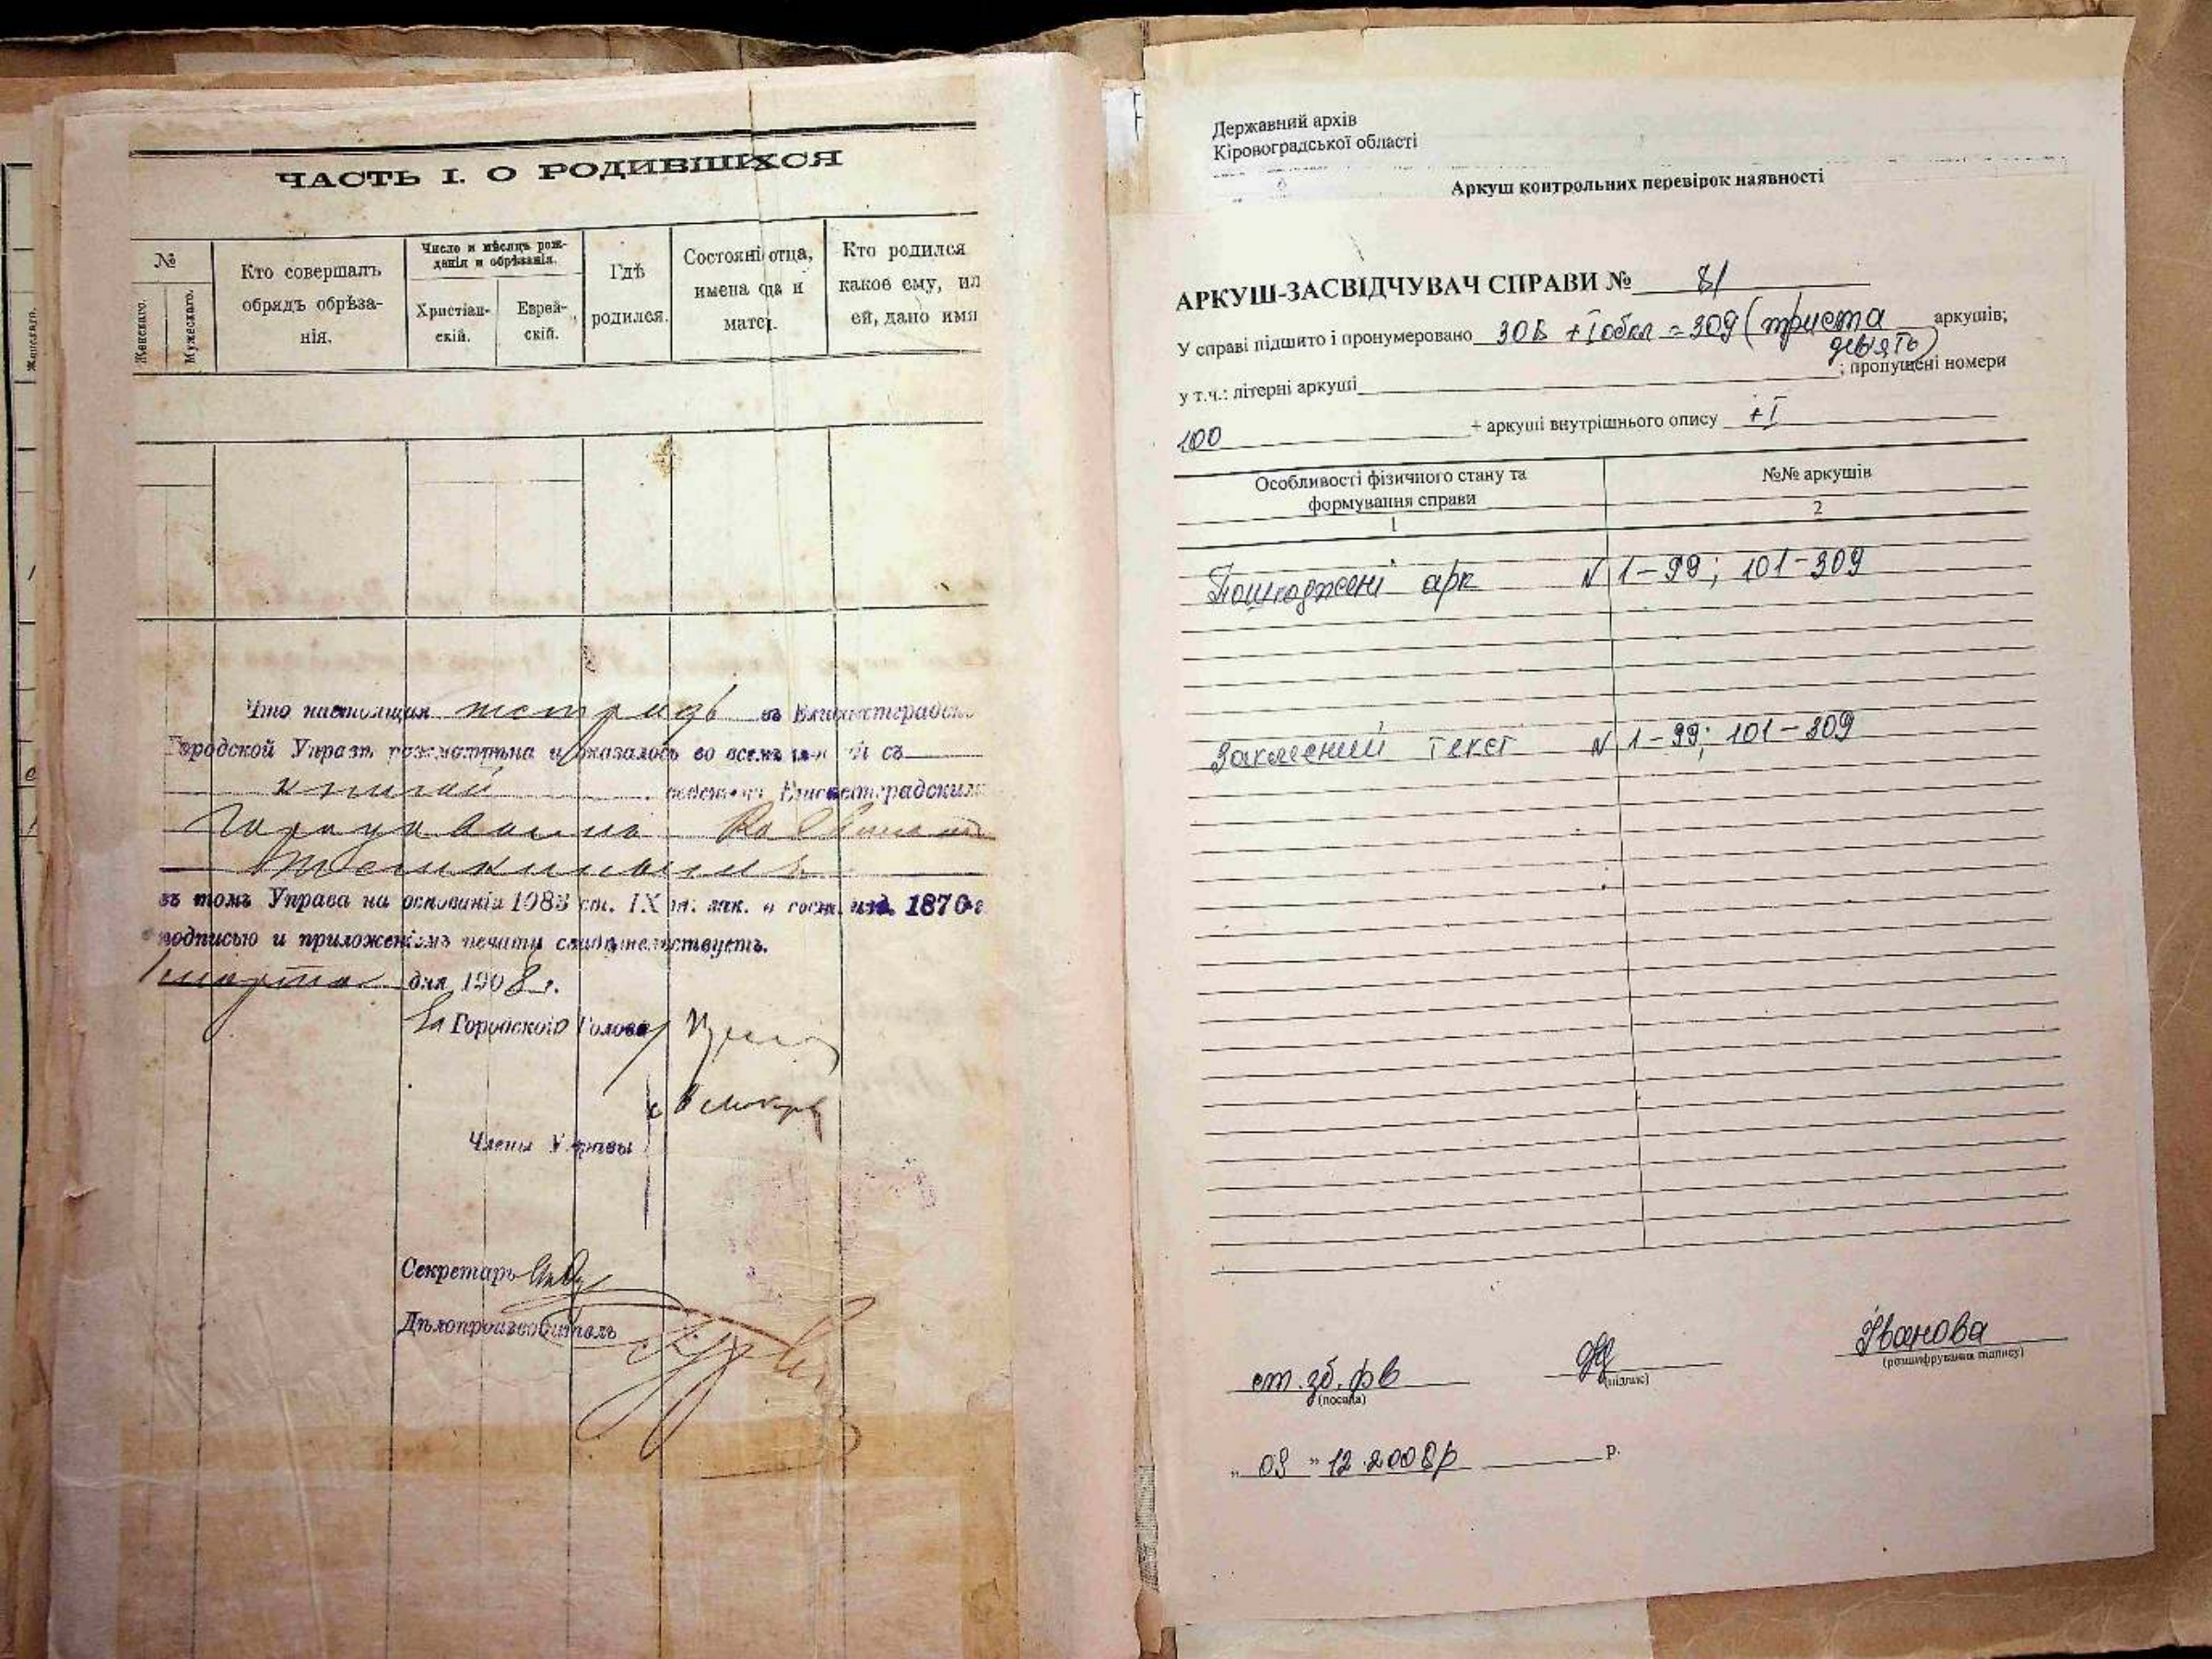 ЧАСТЬ I. О РОДИВШИХСЯ
№
Женскаго.
Мужескаго.
Кто совершалъ
обрядъ обрѣза-
нія.
Число и мѣсяцъ рож-
данія и обрѣзанія.
Христіан-
скій.
Еврей-
скій.
Гдѣ
родился.
Состояніе отца,
имена отца и
матери.
Кто родился
какое ему, ил
ей, дано имя
Что настоящая тетрадь въ Елисаветградск.
Городской Управѣ разсматрѣна и оказалось во всемъ съ
книгой Елисаветградскимъ
въ томъ Управа на основаніи 1083 ст. IX т. зак. о сост. изд. 1876 г
подписью и приложеніемъ печати свидѣтельствуетъ.
1 марта дня 1908 г.
За Городского Голову
Члены Управы
Секретарь
Дѣлопроизводитель
Державний архів
Кіровоградської області
Аркуш контрольних перевірок наявності
АРКУШ-ЗАСВІДЧУВАЧ СПРАВИ № 81
У справі підшито і пронумеровано 308 + 1обкл = 309 (триста аркушів;
девять)
у т.ч.: літерні аркуші ; пропущені номери
100 + аркуші внутрішнього опису +1
Особливості фізичного стану та
формування справи
№№ аркушів
1
2
Пошкоджені арк N 1-99; 101-309
Заклеений текст N 1-99; 101-309
ст. зб. фв
(посада)
(підпис)
Іванова
(розшифрування підпису)
„ 09 " 12.2008р р.